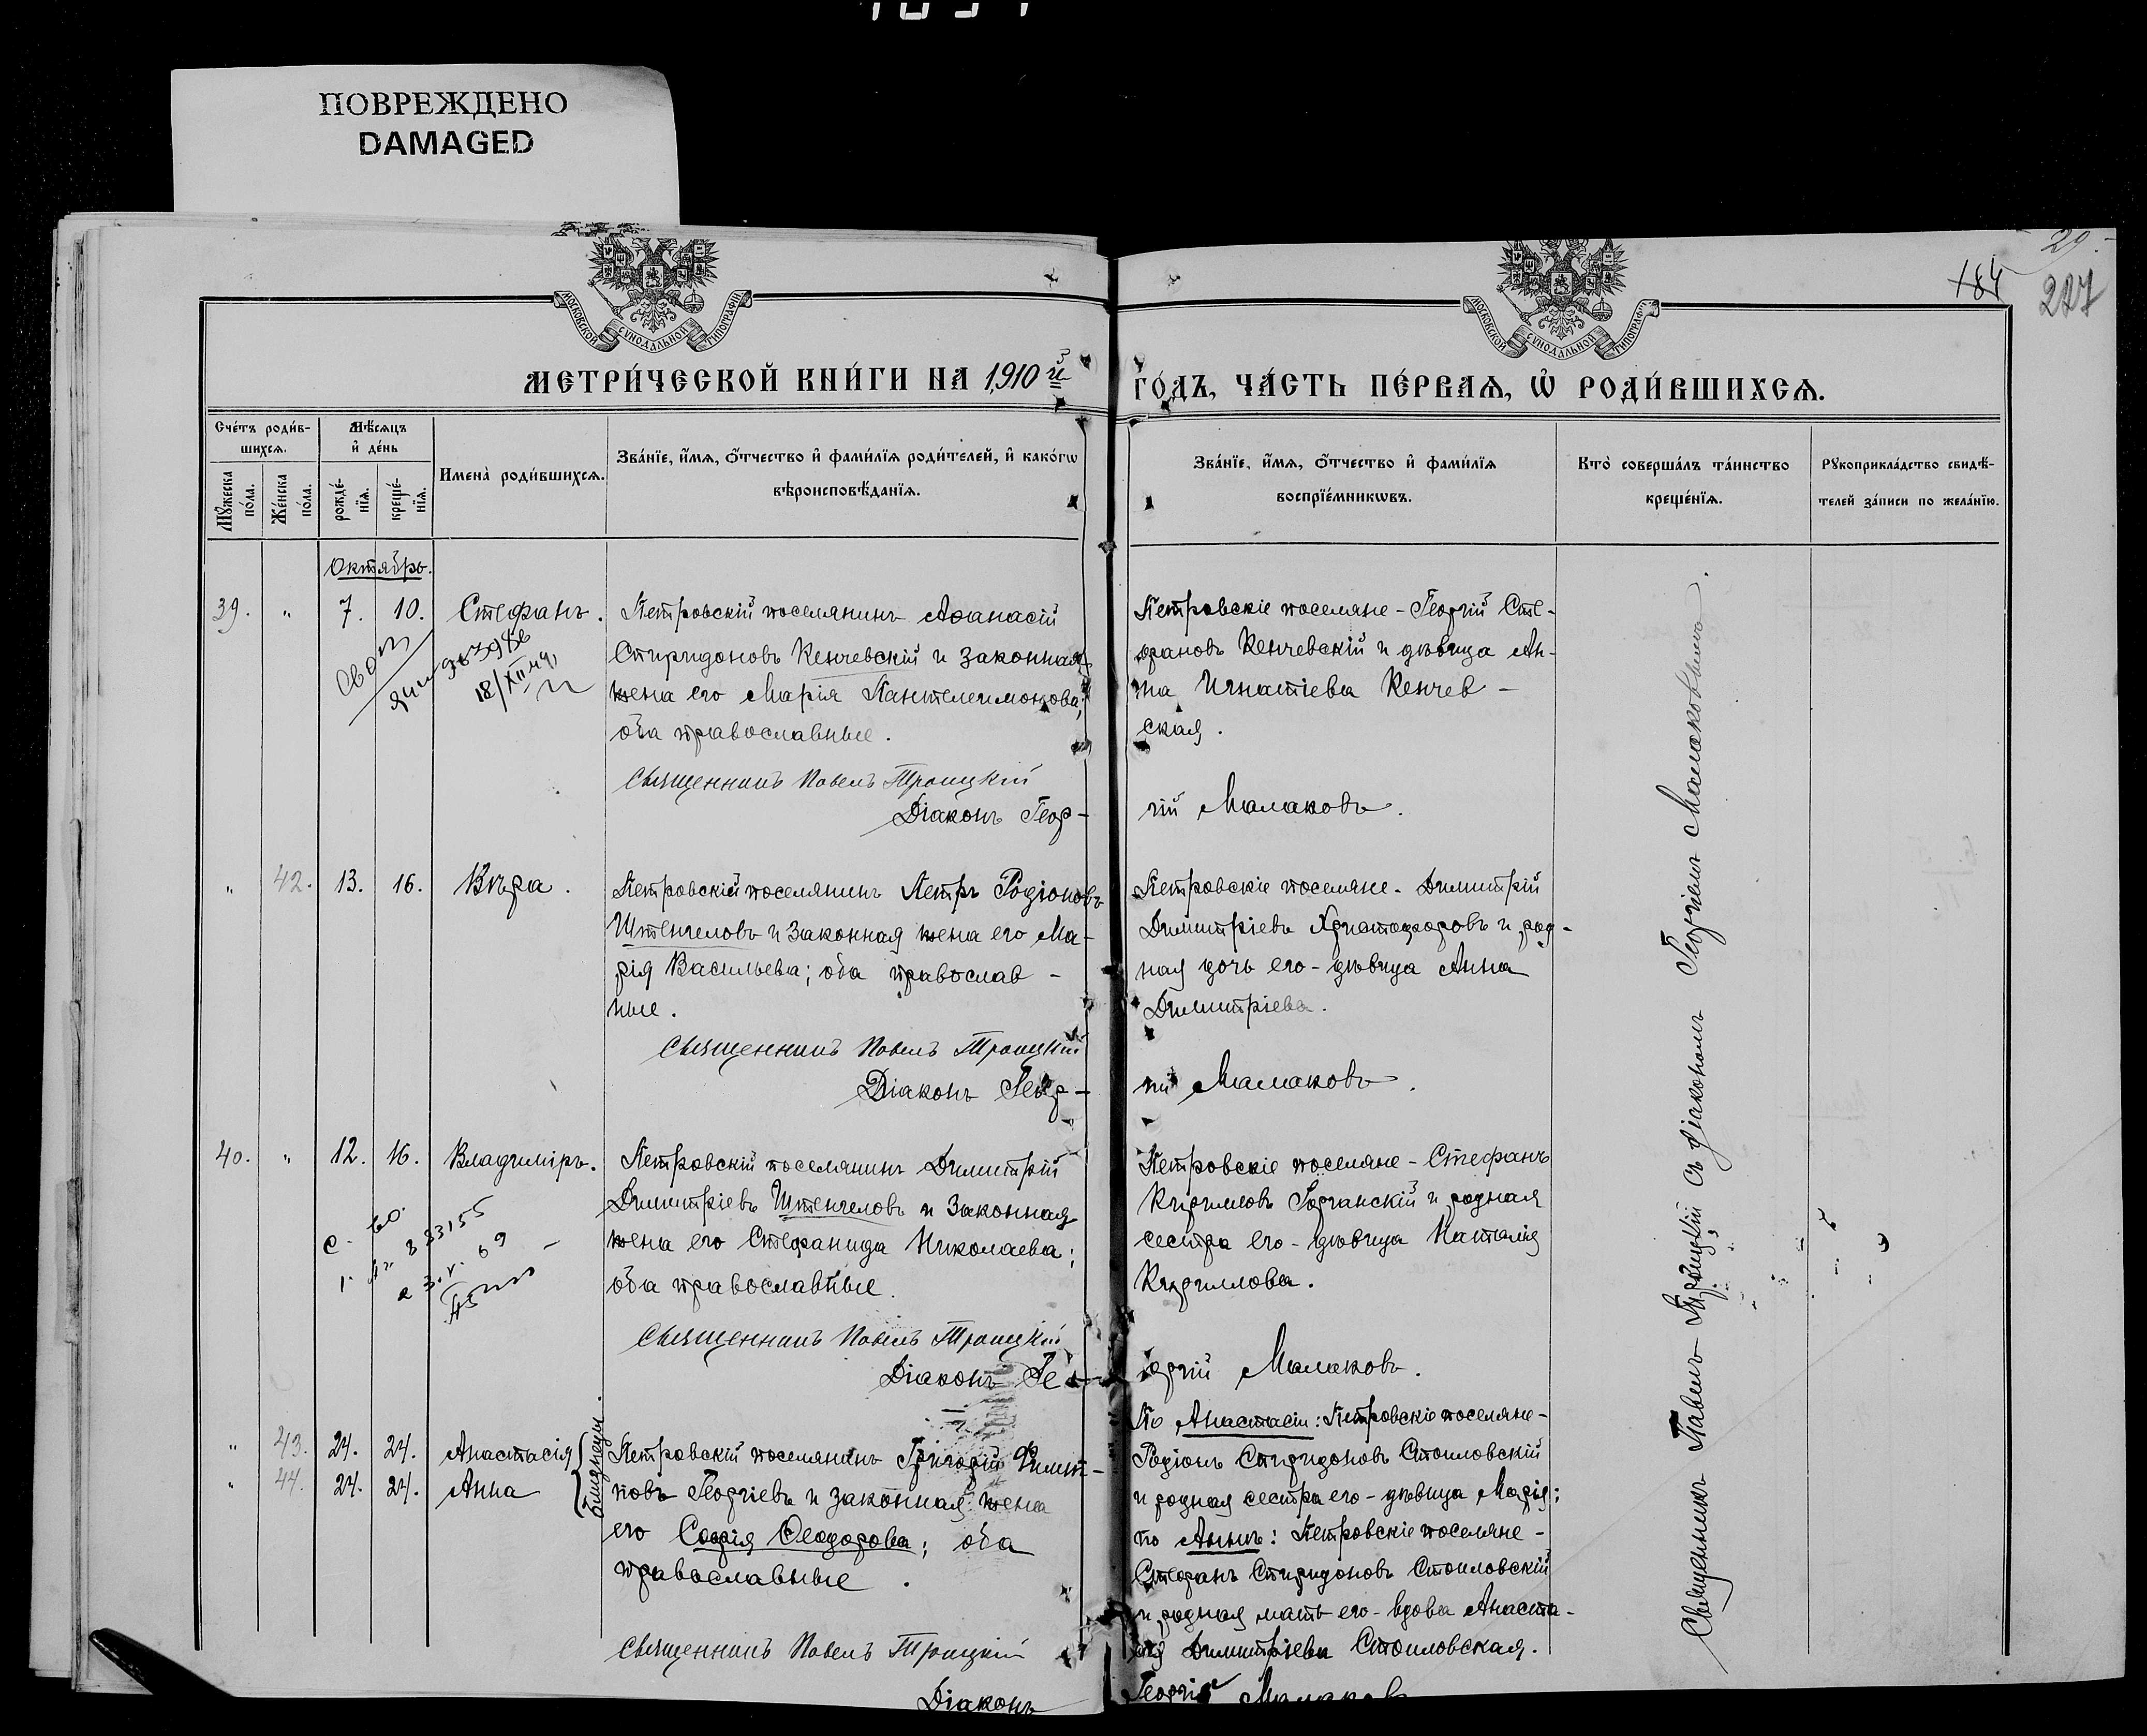 ПОВРЕЖДЕНО
DAMAGED
МОСКОВСКОЙ СѴНОДАЛЬНОЙ ТИПОГРАФІИ
МОСКОВСКОЙ СѴНОДАЛЬНОЙ ТИПОГРАФІИ
29.
184
227
МЕТРИ́ЧЕСКОЙ КНИ́ГИ НА 1910й ГО́ДЪ, ЧА́СТЬ ПЕ́РВАѦ, Ѡ҆ РОДИ́ВШИХСѦ.
Сче́тъ роди́в-
шихсѧ.
Мꙋ́жеска по́ла.
Же́нска по́ла.
Мѣ́сѧцъ
и҆ де́нь
рожде́-
нїѧ.
креще́-
нїѧ.
Имена̀ роди́вшихсѧ.
Зва́нїе, и҆́мѧ, ѻ҆́тчество и҆ фами́лїѧ роди́телей, и҆ како́гѡ
вѣроисповѣ́данїѧ.
Зва́нїе, и҆́мѧ, ѻ҆́тчество и҆ фами́лїѧ
воспрїе́мникѡвъ.
Кто̀ соверша́лъ та́инство
креще́нїѧ.
Рꙋкоприкла́дство свидѣ́-
телей за́писи по жела́нїю.
Октябрь.
39. " 7. 10. Стефанъ.
Петровскій поселянинъ Аѳанасій
Спиридоновъ Кенчевскій и законная
жена его Марія Пантелеимонова;
оба православные.
Священникъ Павелъ Троицкій
Діаконъ Геор-
гій Малаковъ.
Петровскіе поселяне - Георгій Сте-
фановъ Кенчевскій и дѣвица Ан-
на Игнатіева Кенчев-
ская.
18/XII
" 42. 13. 16. Вѣра.
Петровскій поселянинъ Петръ Родіоновъ
Штенгеловъ и законная жена его Ма-
рія Васильева; оба православ-
ные.
Священникъ Павелъ Троицкій
Діаконъ Геор-
гій Малаковъ.
Петровскіе поселяне - Димитрій
Димитріевъ Христофоровъ и род-
ная дочь его - дѣвица Анна
Димитріева.
40. " 12. 16. Владиміръ.
Петровскій поселянинъ Димитрій
Димитріевъ Штенгеловъ и законная
жена его Стефанида Николаева;
оба православные.
Священникъ Павелъ Троицкій
Діаконъ Ге-
оргій Малаковъ.
Петровскіе поселяне - Стефанъ
Кирилловъ Горчанскій и родная
сестра его - дѣвица Наталія
Кириллова.
" 43. 24. 24. Анастасія
" 44. 24. 24. Анна
близнецы.
Петровскій поселянинъ Григорій Филип-
повъ Георгіевъ и законная жена
его Софія Ѳеодорова; оба
православные.
Священникъ Павелъ Троицкій
Діаконъ
Георгій Малаковъ
По Анастасіи: Петровскіе поселяне -
Родіонъ Спиридоновъ Стоиловскій
и родная сестра его - дѣвица Марія;
по Аннѣ: Петровскіе поселяне -
Стефанъ Спиридоновъ Стоиловскій
и родная мать его - вдова Анаста-
сія Димитріева Стоиловская.
Священникъ Павелъ Троицкій съ діакономъ Георгіемъ Малаковымъ.